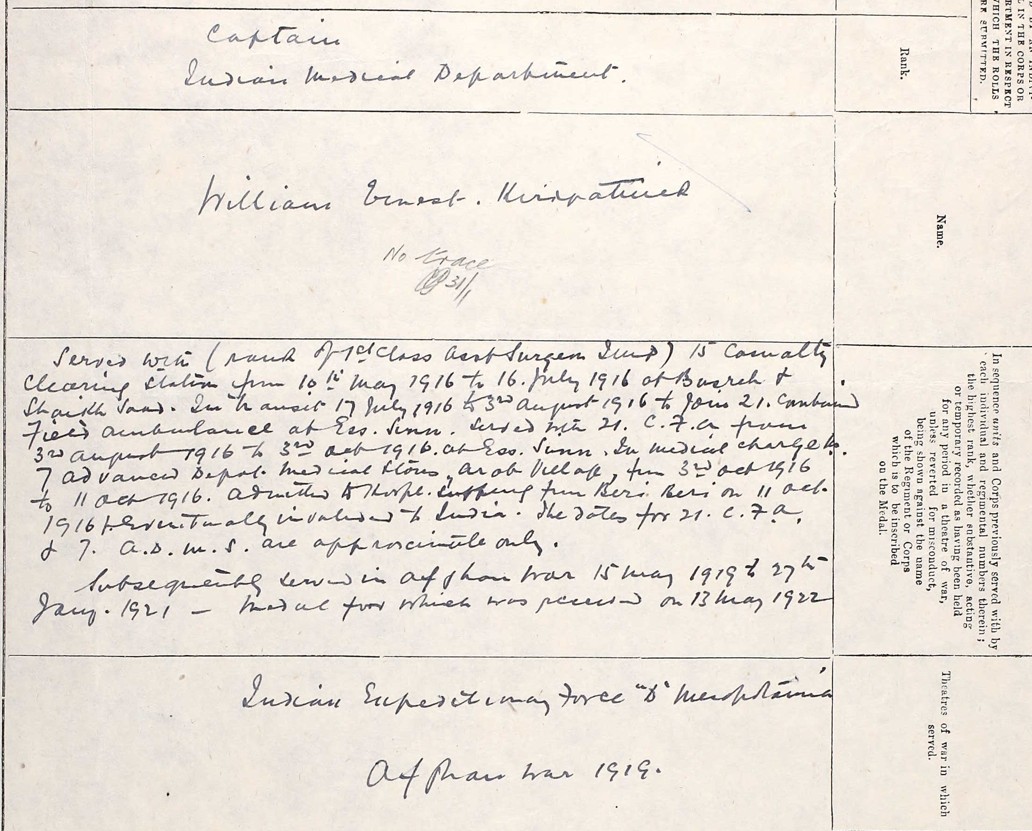 Captain
Indian Medical Department.
William Ernest. Kirkpatrick
No trace
31/1
Served with (rank of 1st Class Asst Surgeon I.M.D) 15 Casualty
Clearing Station from 10th May 1916 to 16. July 1916 at Basrah &
Shaikh Saad. In transit 17 July 1916 to 3rd August 1916 to join 21. Combined
Field Ambulance at Ess. Sinn. Served with 21. C.F.A from
3rd August 1916 to 3rd Oct 1916. at Ess. Sinn. In medical charge No.
7 Advanced Depot. Medical Stores, Arab Village, from 3rd Oct 1916
to 11 Oct 1916. Admitted to Hospl. suffering from Beri Beri on 11 Oct.
1916 & eventually invalided to India. The dates for 21. C.F.A.
& 7. A.D.M.S. are approximate only.
Subsequently served in Afghan War 15 May 1919 to 27th
Jany. 1921 – medal for which was received on 13 May 1922
Indian Expeditionary Force "D" Mesopotamia
Afghan War 1919.
L IN THE CORPS OR
RTMENT IN RESPECT
WHICH THE ROLLS
RE SUBMITTED.
Rank.
Name.
In sequence units and Corps previously served with by
each individual and regimental numbers therein;
the highest rank, whether substantive, acting
or temporary recorded as having been held
for any period in a theatre of war,
unless reverted for misconduct,
being shown against the name
of the Regiment or Corps
which is to be inscribed
on the Medal.
Theatres of war in which
served.